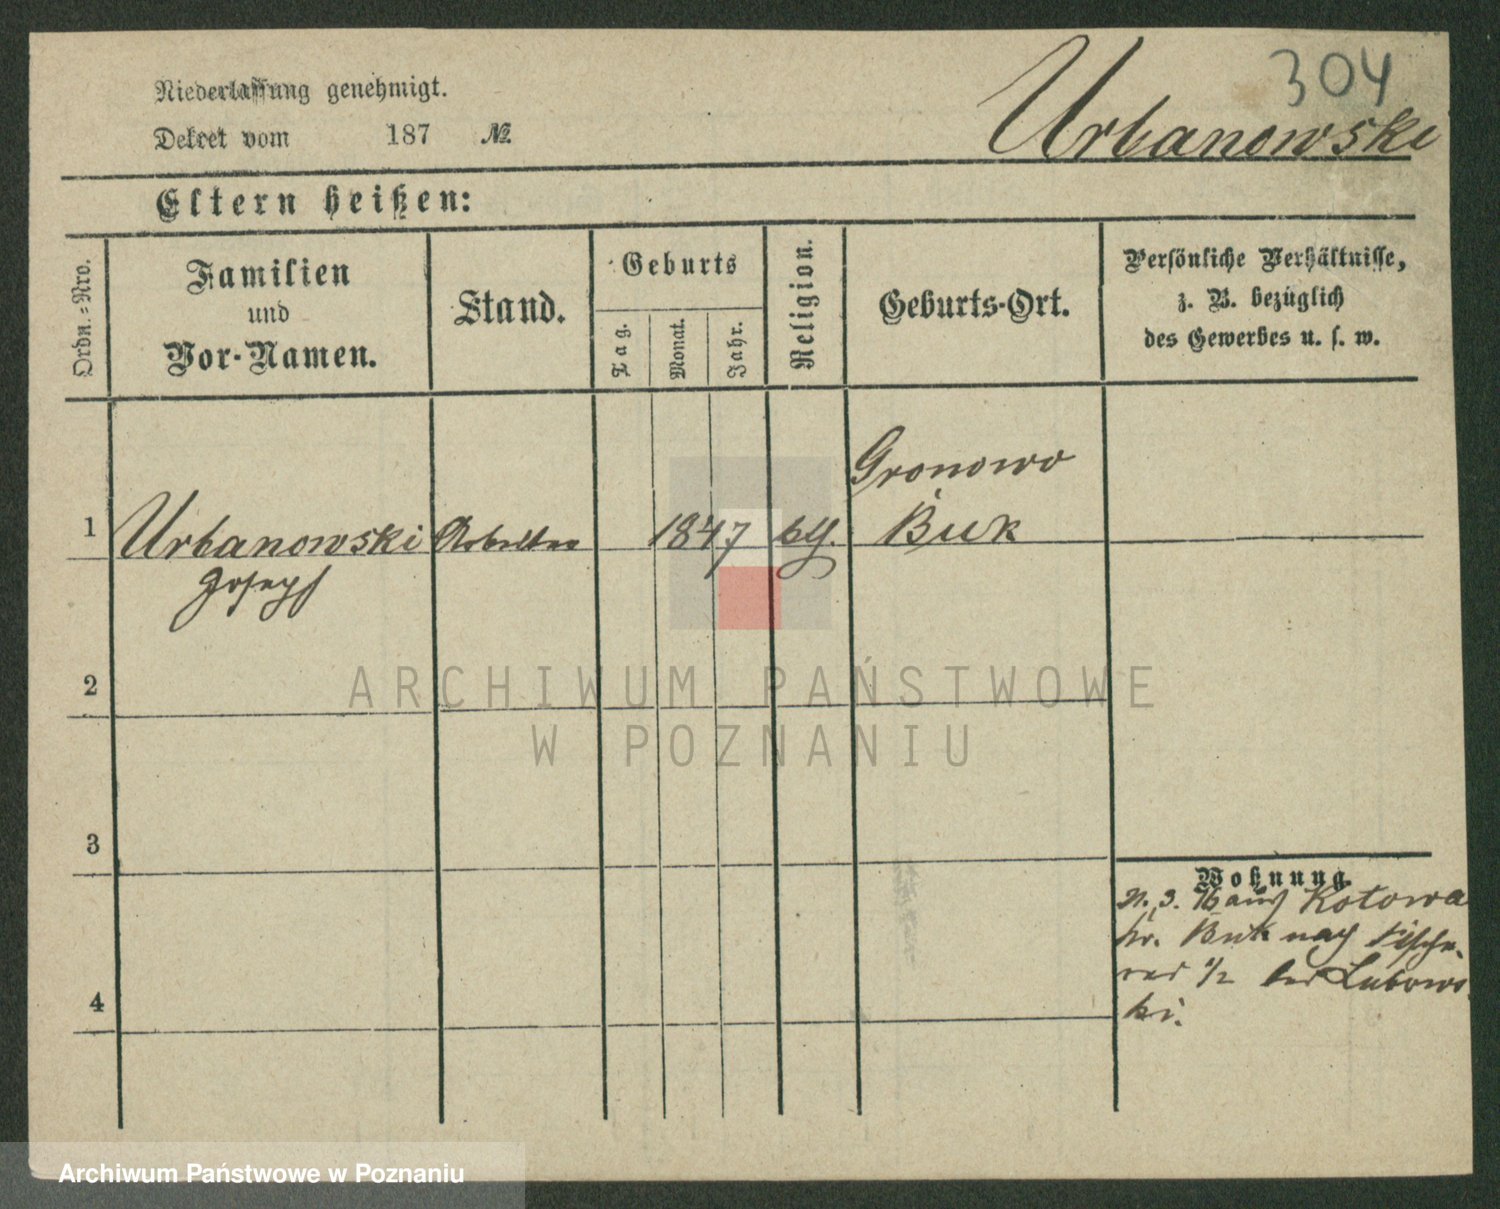 304
Urbanowski
Niederlassung genehmigt.
Dekret vom 187 №.
Eltern heißen:
Ordn.=Nro.
Familien
und
Vor-Namen.
Stand.
Geburts
Tag.
Monat.
Jahr.
Religion.
Geburts-Ort.
Persönliche Verhältnisse,
z. B. bezüglich
des Gewerbes u. s. w.
1
Urbanowski
Joseph
1847
Gronowo
Buk
2
3
4
Wohnung
Kotowo
Buk nach
1/2 bei Lubows
ki.
ARCHIWUM PAŃSTWOWE
W POZNANIU
Archiwum Państwowe w Poznaniu